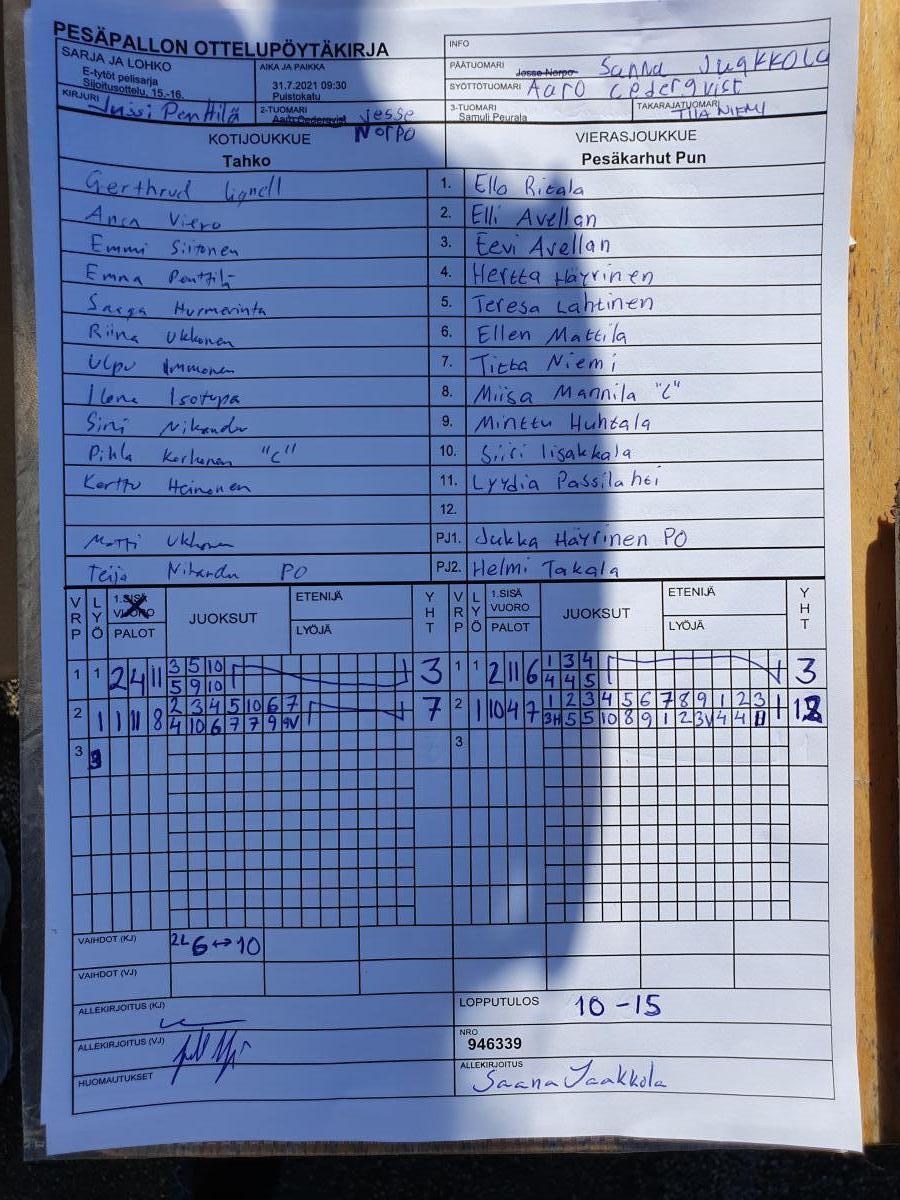 PESÄPALLON OTTELUPÖYTÄKIRJA
SARJA JA LOHKO
E-tytöt pelisarja
Sijoitusottelu, 15.-16.
AIKA JA PAIKKA
31.7.2021 09:30
Puistokatu
INFO
PÄÄTUOMARI Josse Norpo Sanna Jaakkola
SYÖTTÖTUOMARI Aaro Cederqvist
KIRJURI Jussi Penttilä
2-TUOMARI Aaro Cederqvist Jesse Norpo
3-TUOMARI
Samuli Peurala
TAKARAJATUOMARI
TIIA NIEMI
KOTIJOUKKUE
Tahko
VIERASJOUKKUE
Pesäkarhut Pun
Gerthrud Lignell 1. Ella Ritala
Anca Viero 2. Elli Avellan
Emmi Siitonen 3. Eevi Avellan
Emma Penttilä 4. Hertta Häyrinen
Saaga Hurmerinta 5. Teresa Lahtinen
Riina Ukkonen 6. Ellen Mattila
Ulpu Immonen 7. Titta Niemi
Ilona Isotupa 8. Miisa Mannila "C"
Sini Nikander 9. Minttu Huhtala
Pihla Korhonen "C" 10. Siiri Iisakkala
Kerttu Heinonen 11. Lyydia Passilahti
12.
Matti Ukkonen PJ1. Jukka Häyrinen PO
Teija Nikander PO PJ2. Helmi Takala
VRP LYÖ 1.SISÄ VUORO PALOT JUOKSUT ETENIJÄ LYÖJÄ YHT VRP LYÖ 1.SISÄ VUORO PALOT JUOKSUT ETENIJÄ LYÖJÄ YHT
1 1 2 4 11 3 5 10 3 1 1 2 11 6 1 3 4 3
5 9 10 4 4 5
2 1 1 11 8 2 3 4 5 10 6 7 7 2 1 10 4 7 1 2 3 4 5 6 7 8 9 1 2 3 12
4 10 6 7 7 9 9V 3H 5 5 10 8 9 1 2 3V 4 4 11
3 3
VAIHDOT (KJ) 2L 6↔10
VAIHDOT (VJ)
ALLEKIRJOITUS (KJ)
LOPPUTULOS 10 - 15
ALLEKIRJOITUS (VJ)
NRO
946339
HUOMAUTUKSET
ALLEKIRJOITUS
Saana Jaakkola